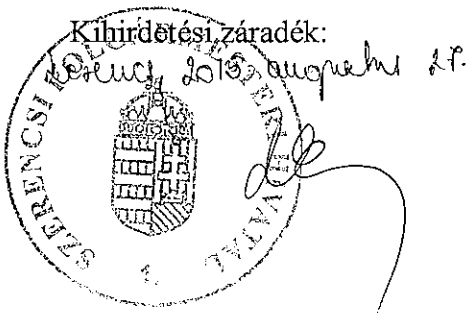 Kihirdetési záradék:
Szerencs, 2015. augusztus 27.
SZERENCSI POLGÁRMESTERI HIVATAL
1.